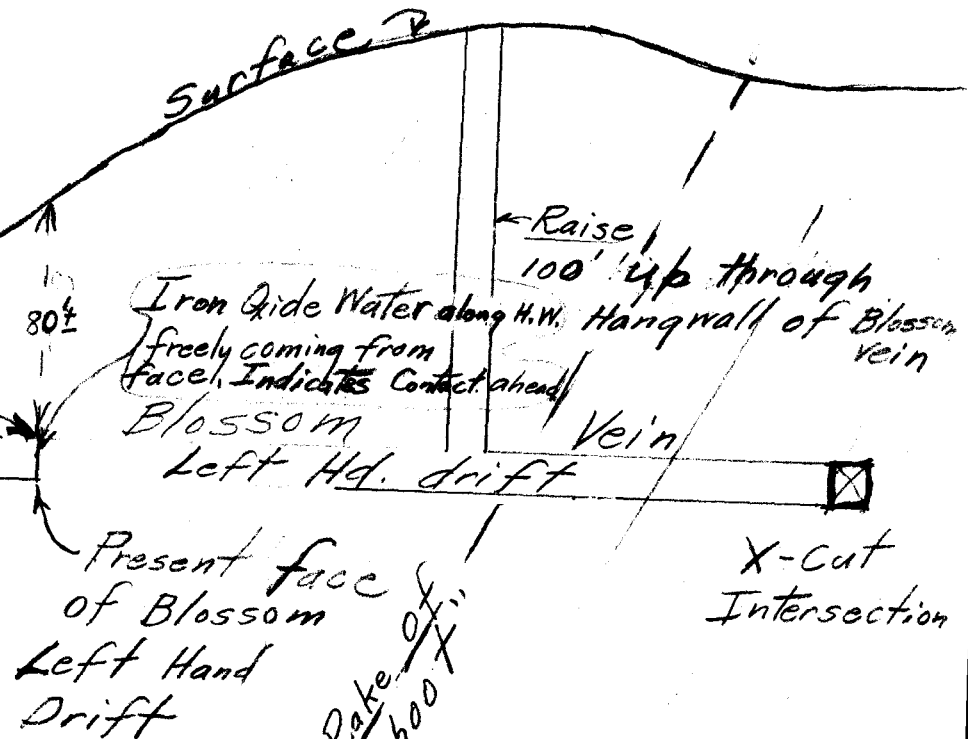 Surface
Raise
100' up through
Hangwall of Blossom
vein
80'±
Iron Oxide Water along H.W.
freely coming from
face. Indicates Contact ahead
Blossom
Vein
Left Hd. drift
Present face
of Blossom
Left Hand
Drift
X-Cut
Intersection
Rake of